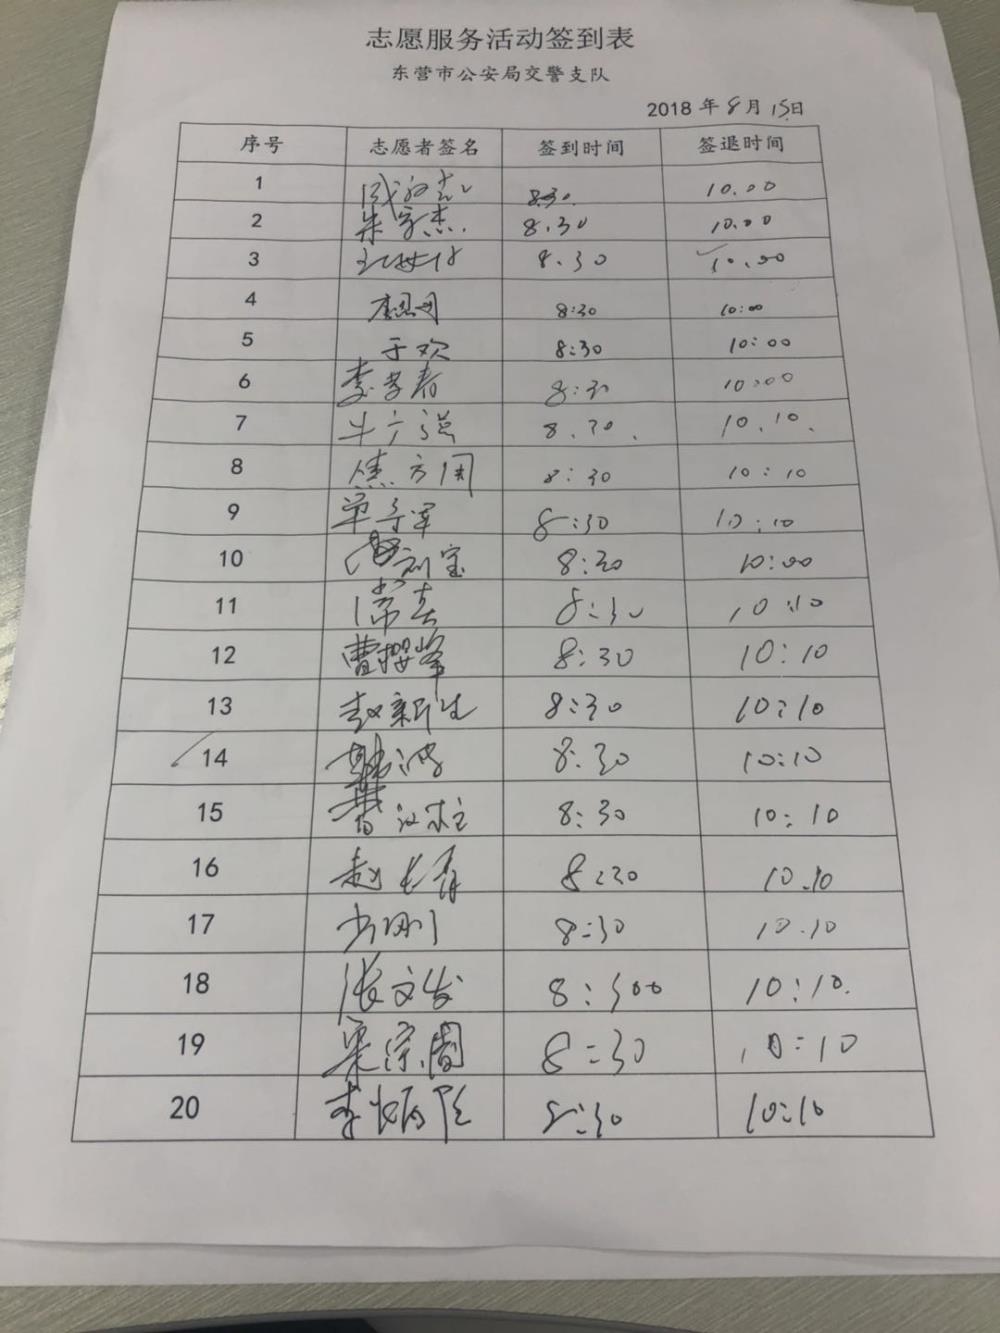 志愿服务活动签到表
东营市公安局交警支队
2018 年 8 月 15日
序号 志愿者签名 签到时间 签退时间
1 8.30. 10.00
2 朱家杰. 8.30 10.00
3 8.30 10.00
4 8:30 10:00
5 于欢 8:30 10:00
6 李孝春 8:30 10:00
7 8.30. 10.10.
8 焦方周 8:30 10:10
9 单守军 8:30 10:10
10 8:30 10:00
11 8:30 10:10
12 曹樱峰 8:30 10:10
13 赵新生 8:30 10:10
14 8:30 10:10
15 8:30 10:10
16 赵长青 8:30 10.10
17 8:30 10.10
18 张文发 8:300 10:10.
19 梁宗周 8:30 10:10
20 8:30 10:10